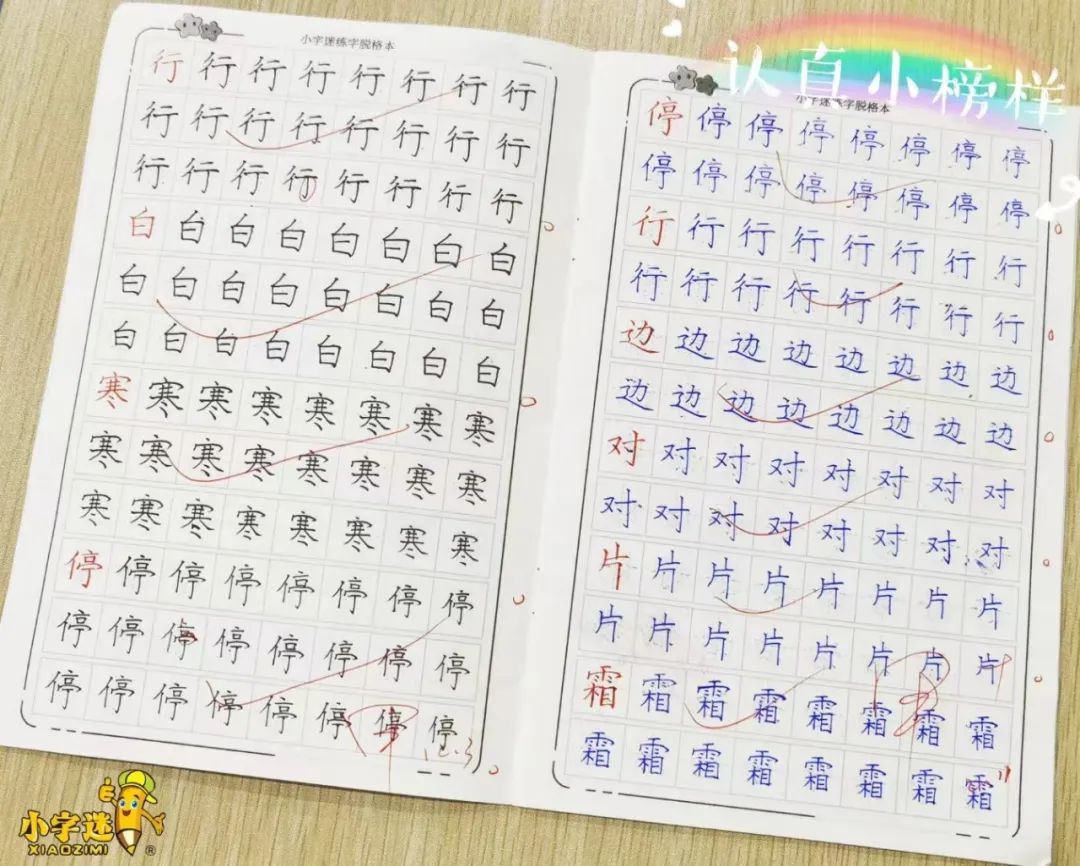 小字迷练字脱格本
行行行行行行行行
行行行行行行行行
行行行行行行行行
白白白白白白白白
白白白白白白白白
白白白白白白白白
寒寒寒寒寒寒寒寒
寒寒寒寒寒寒寒寒
寒寒寒寒寒寒寒寒
停停停停停停停停
停停停停停停停停
停停停停停停停停
认真小榜样
小字迷练字脱格本
停停停停停停停停
停停停停停停停停
行行行行行行行行
行行行行行行行行
边边边边边边边边
边边边边边边边边
对对对对对对对对
对对对对对对对对
片片片片片片片片
片片片片片片片片
霜霜霜霜霜霜霜霜
霜霜霜霜霜霜霜霜
小字迷
XIAOZIMI
®